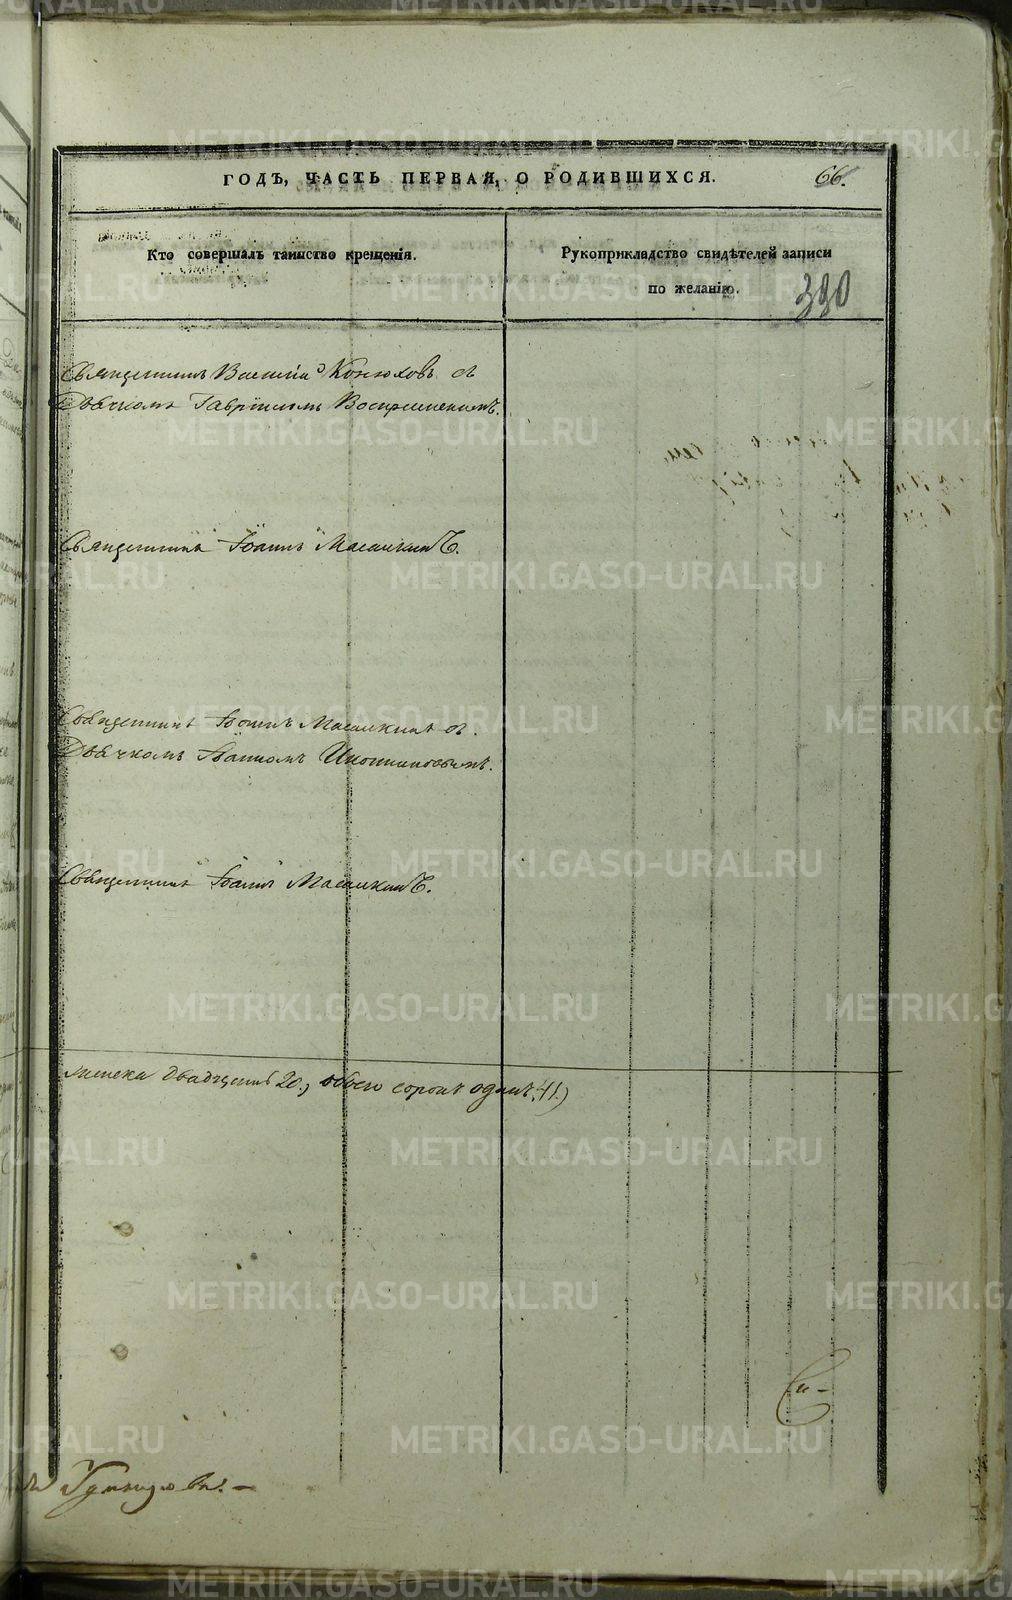 ГОДЪ, ЧАСТЬ ПЕРВАЯ, О РОДИВШИХСЯ.
66.
Кто совершалъ таинство крещенія.
Рукоприкладство свидѣтелей записи
по желанію.
380
Священникъ Василій Конюховъ съ
Дьячкомъ Гавріиломъ Воскресенскимъ.
Священникъ Іоаннъ
Священникъ Іоаннъ съ
Дьячкомъ Іоанномъ Иконниковымъ.
Священникъ Іоаннъ
женска двадцать 20., обоего сорокъ одинъ, 41.)
METRIKI.GASO-URAL.RU